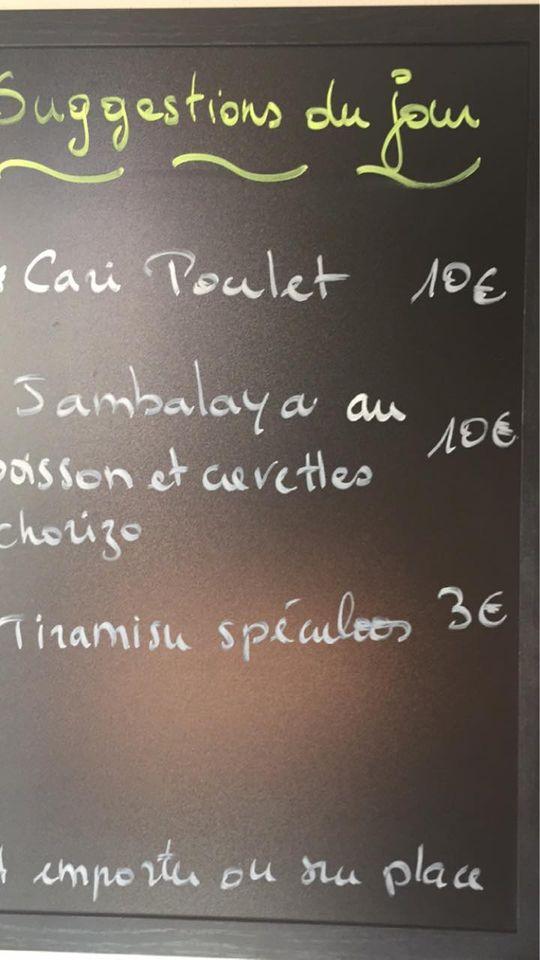 Suggestions du jour
Cari Poulet 10€
Jambalaya au
poisson et crevettes 10€
chorizo
Tiramisu spéculoos 3€
A emporter ou sur place